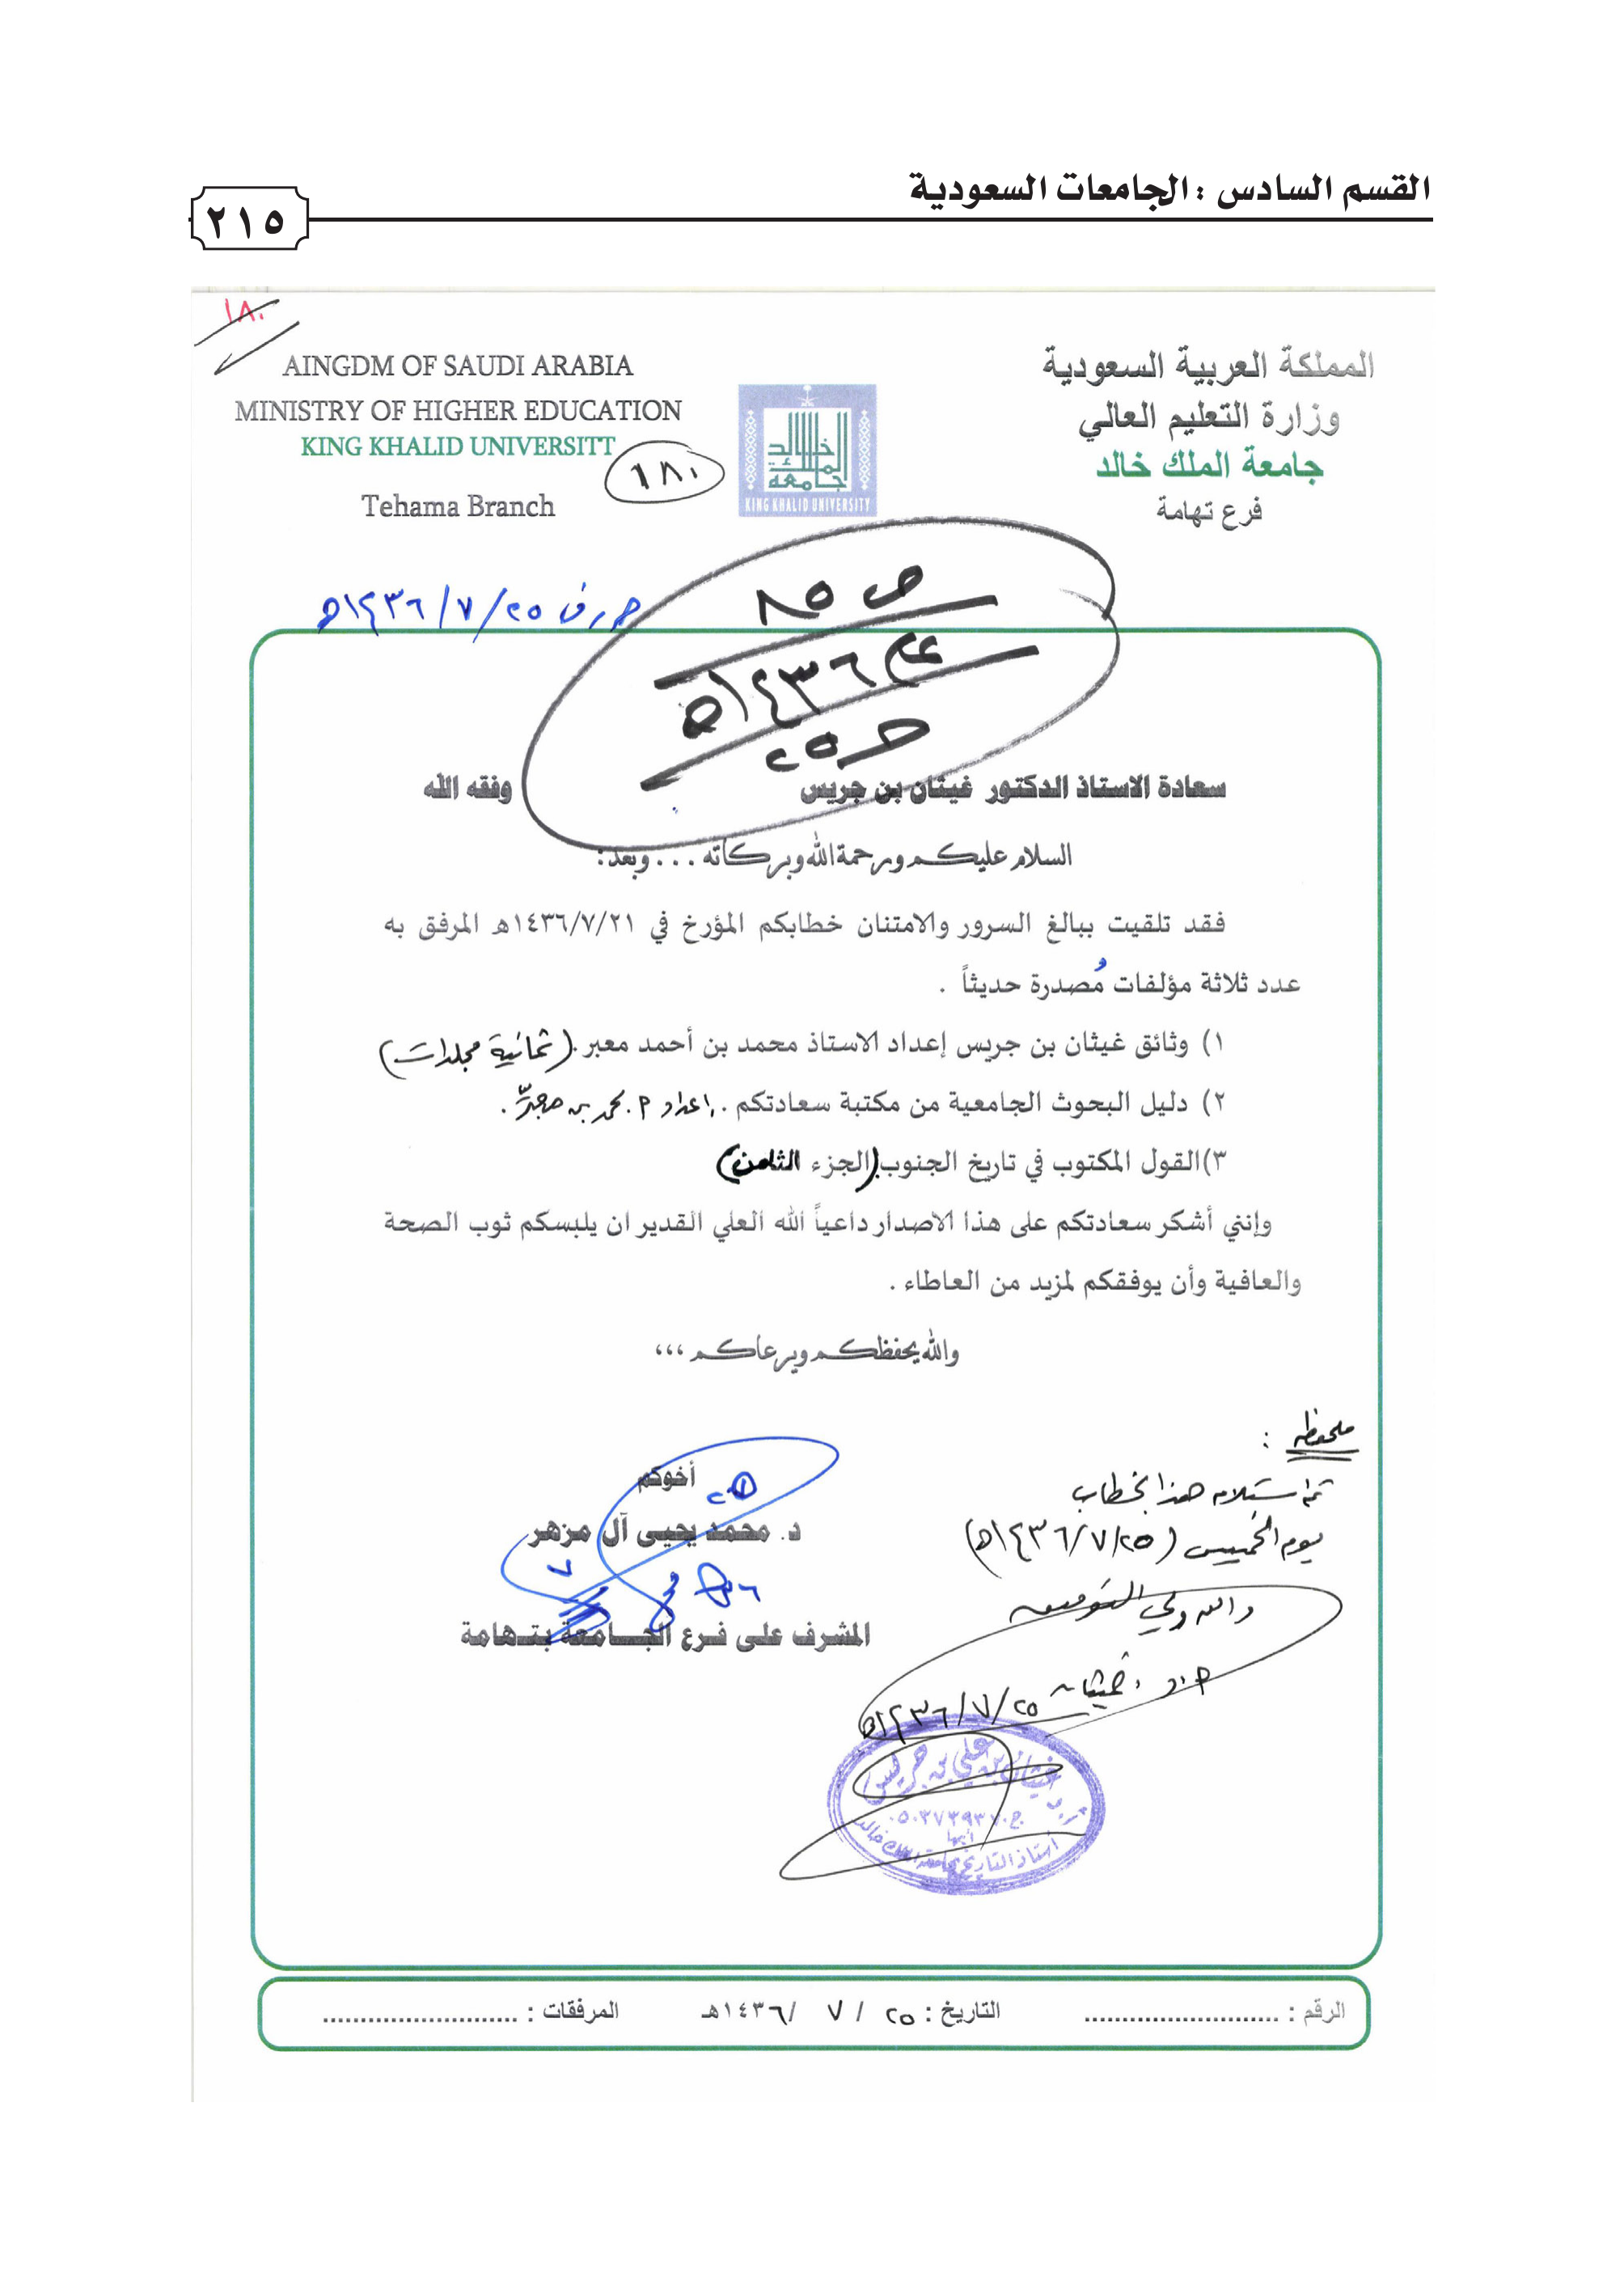 القسم السادس : الجامعات السعودية
٢١٥
١٨٠
AINGDM OF SAUDI ARABIA
MINISTRY OF HIGHER EDUCATION
KING KHALID UNIVERSITT
Tehama Branch
١٨٠
KING KHALID UNIVERSITY
المملكة العربية السعودية
وزارة التعليم العالي
جامعة الملك خالد
فرع تهامة
٢٥/٧/١٤٣٦هـ
ص ٨٥
عام ١٤٣٦هـ
حـ ٢٥
سعادة الاستاذ الدكتور غيثان بن جريس وفقه الله
السلام عليكم ورحمة الله وبركاته . . . وبعد:
فقد تلقيت ببالغ السرور والامتنان خطابكم المؤرخ في ١٤٣٦/٧/٢١هـ المرفق به
عدد ثلاثة مؤلفات مُصدرة حديثاً .
١) وثائق غيثان بن جريس إعداد الاستاذ محمد بن أحمد معبر. (ثمانية مجلدات)
٢) دليل البحوث الجامعية من مكتبة سعادتكم . إعداد أ. محمد بن
٣)القول المكتوب في تاريخ الجنوب.(الجزء الثامن)
وإنني أشكر سعادتكم على هذا الاصدار داعياً الله العلي القدير ان يلبسكم ثوب الصحة
والعافية وأن يوفقكم لمزيد من العاطاء .
والله يحفظكم ويرعاكم ،،،
أخوكم
د. محمد يحيى آل مزهر
المشرف على فرع الجامعة بتهامة
ملحوظة :
تم استلام هذا الخطاب
يوم الخميس (٢٥/٧/١٤٣٦هـ)
والله ولي التوفيق
أ.د. غيثان
٢٥/٧/١٤٣٦هـ
أ.د. غيثان بن علي بن جريس
أبها
استاذ التاريخ بجامعة الملك خالد
الرقم : .......................... التاريخ : ٢٥ / ٧ /١٤٣٦هـ المرفقات : ..........................